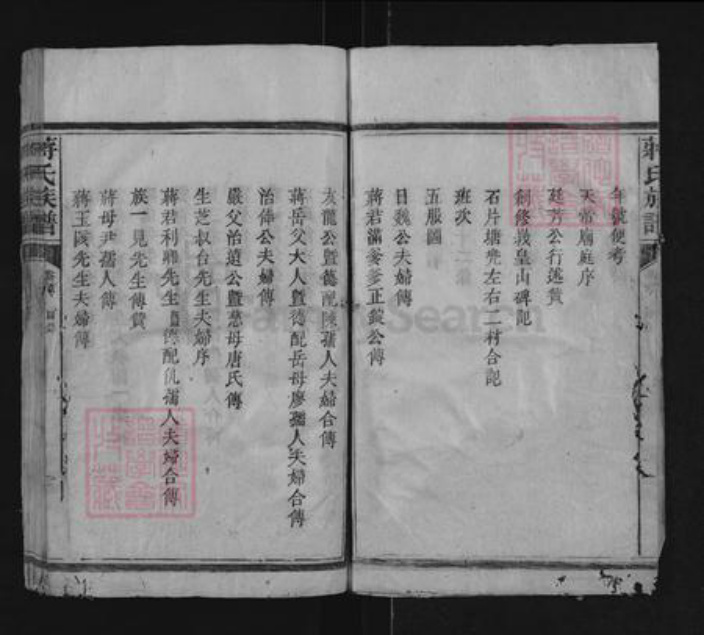 蔣氏族譜
年號便考
天帝廟庭序
廷芳公行述贊
創修義皇山碑記
石片塘兠左右二村合記
班次
五服圖
日魏公夫婦傳
蔣君滿爹爹正錠公傳
友龍公暨德配陳孺人夫婦合傳
蔣岳父大人暨德配岳母廖孺人夫婦合傳
治倖公夫婦傳
嚴父治道公暨慈母唐氏傳
生芝叔台先生夫婦序
蔣君利 先生暨德配 孺人夫婦合傳
族一見先生傳贊
蔣母尹孺人傳
蔣玉 先生夫婦傳
蔣氏族譜